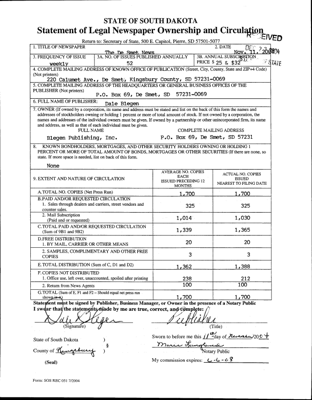 STATE OF SOUTH DAKOTA
Statement of Legal Newspaper Ownership and Circulation
Return to: Secretary of State, 500 E. Capitol, Pierre, SD 57501-5077
1. TITLE OF NEWSPAPER
The De Smet News
2. DATE
Nov. 11, 2004
3. FREQUENCY OF ISSUE
weekly
3A. NO. OF ISSUES PUBLISHED ANNUALLY
52
3B. ANNUAL SUBSCRIPTION PRICE $ 25 & $32
4. COMPLETE MAILING ADDRESS OF KNOWN OFFICE OF PUBLICATION (Street, City, County, State and ZIP+4 Code)
(Not printers)
220 Calumet Ave., De Smet, Kingsbury County, SD 57231-0069
5. COMPLETE MAILING ADDRESS OF THE HEADQUARTERS OR GENERAL BUSINESS OFFICES OF THE
PUBLISHER (Not printers)
P.O. Box 69, De Smet, SD 57231-0069
6. FULL NAME OF PUBLISHER:
Dale Blegen
7. OWNER (If owned by a corporation, its name and address must be stated and
addresses of stockholders owning or holding 1 percent or more of total amount of stock. If not owned by a corporation, the
names and addresses of the individual owners must be given. If owned by a partnership or other unincorporated firm, its name
and address, as well as that of each individual must be given.
FULL NAME
COMPLETE MAILING ADDRESS
Blegen Publishing, Inc.
P.O. Box 69, De Smet, SD 57231
8. KNOWN BONDHOLDERS, MORTGAGES, AND OTHER SECURITY HOLDERS OWNING OR HOLDING 1
PERCENT OR MORE OF TOTAL AMOUNT OF BONDS, MORTGAGES OR OTHER SECURITIES (If there are none, so
state. If more space is needed, list on back of this form.
None
9. EXTENT AND NATURE OF CIRCULATION
AVERAGE NO. COPIES
EACH
ISSUED PRECEDING 12
MONTHS
ACTUAL NO. COPIES
ISSUED
NEAREST TO FILING DATE
A. TOTAL NO. COPIES (Net Press Run)
1,700
1,700
B. PAID AND/OR REQUESTED CIRCULATION
1. Sales through dealers and carriers, street vendors and
counter sales.
325
325
2. Mail Subscription
(Paid and or requested)
1,014
1,030
C. TOTAL PAID AND/OR REQUESTED CIRCULATION
(Sum of 9B1 and 9B2)
1,339
1,365
D. FREE DISTRIBUTION
1. BY MAIL, CARRIER OR OTHER MEANS
20
20
2. SAMPLES, COMPLIMENTARY AND OTHER FREE
COPIES
3
3
E. TOTAL DISTRIBUTION (Sum of C, D1 and D2)
1,362
1,388
F. COPIES NOT DISTRIBUTED
1. Office use, left over, unaccounted, spoiled after printing
238
212
2. Return from News Agents
100
100
G. TOTAL (Sum of E, F1 and F2 - Should equal net press run
1,700
1,700
Statement must be signed by Publisher, Business Manager, or Owner in the presence of a Notary Public
I swear that the statements made by me are true, correct, and complete:
Dale Blegen
Publisher
(Signature)
(Title)
State of South Dakota )
County of Kingsbury )
§
(Seal)
Sworn to before me this 11th day of
Notary Public
My commission expires: 6-6-08
Form: SOS REC 051 7/2004